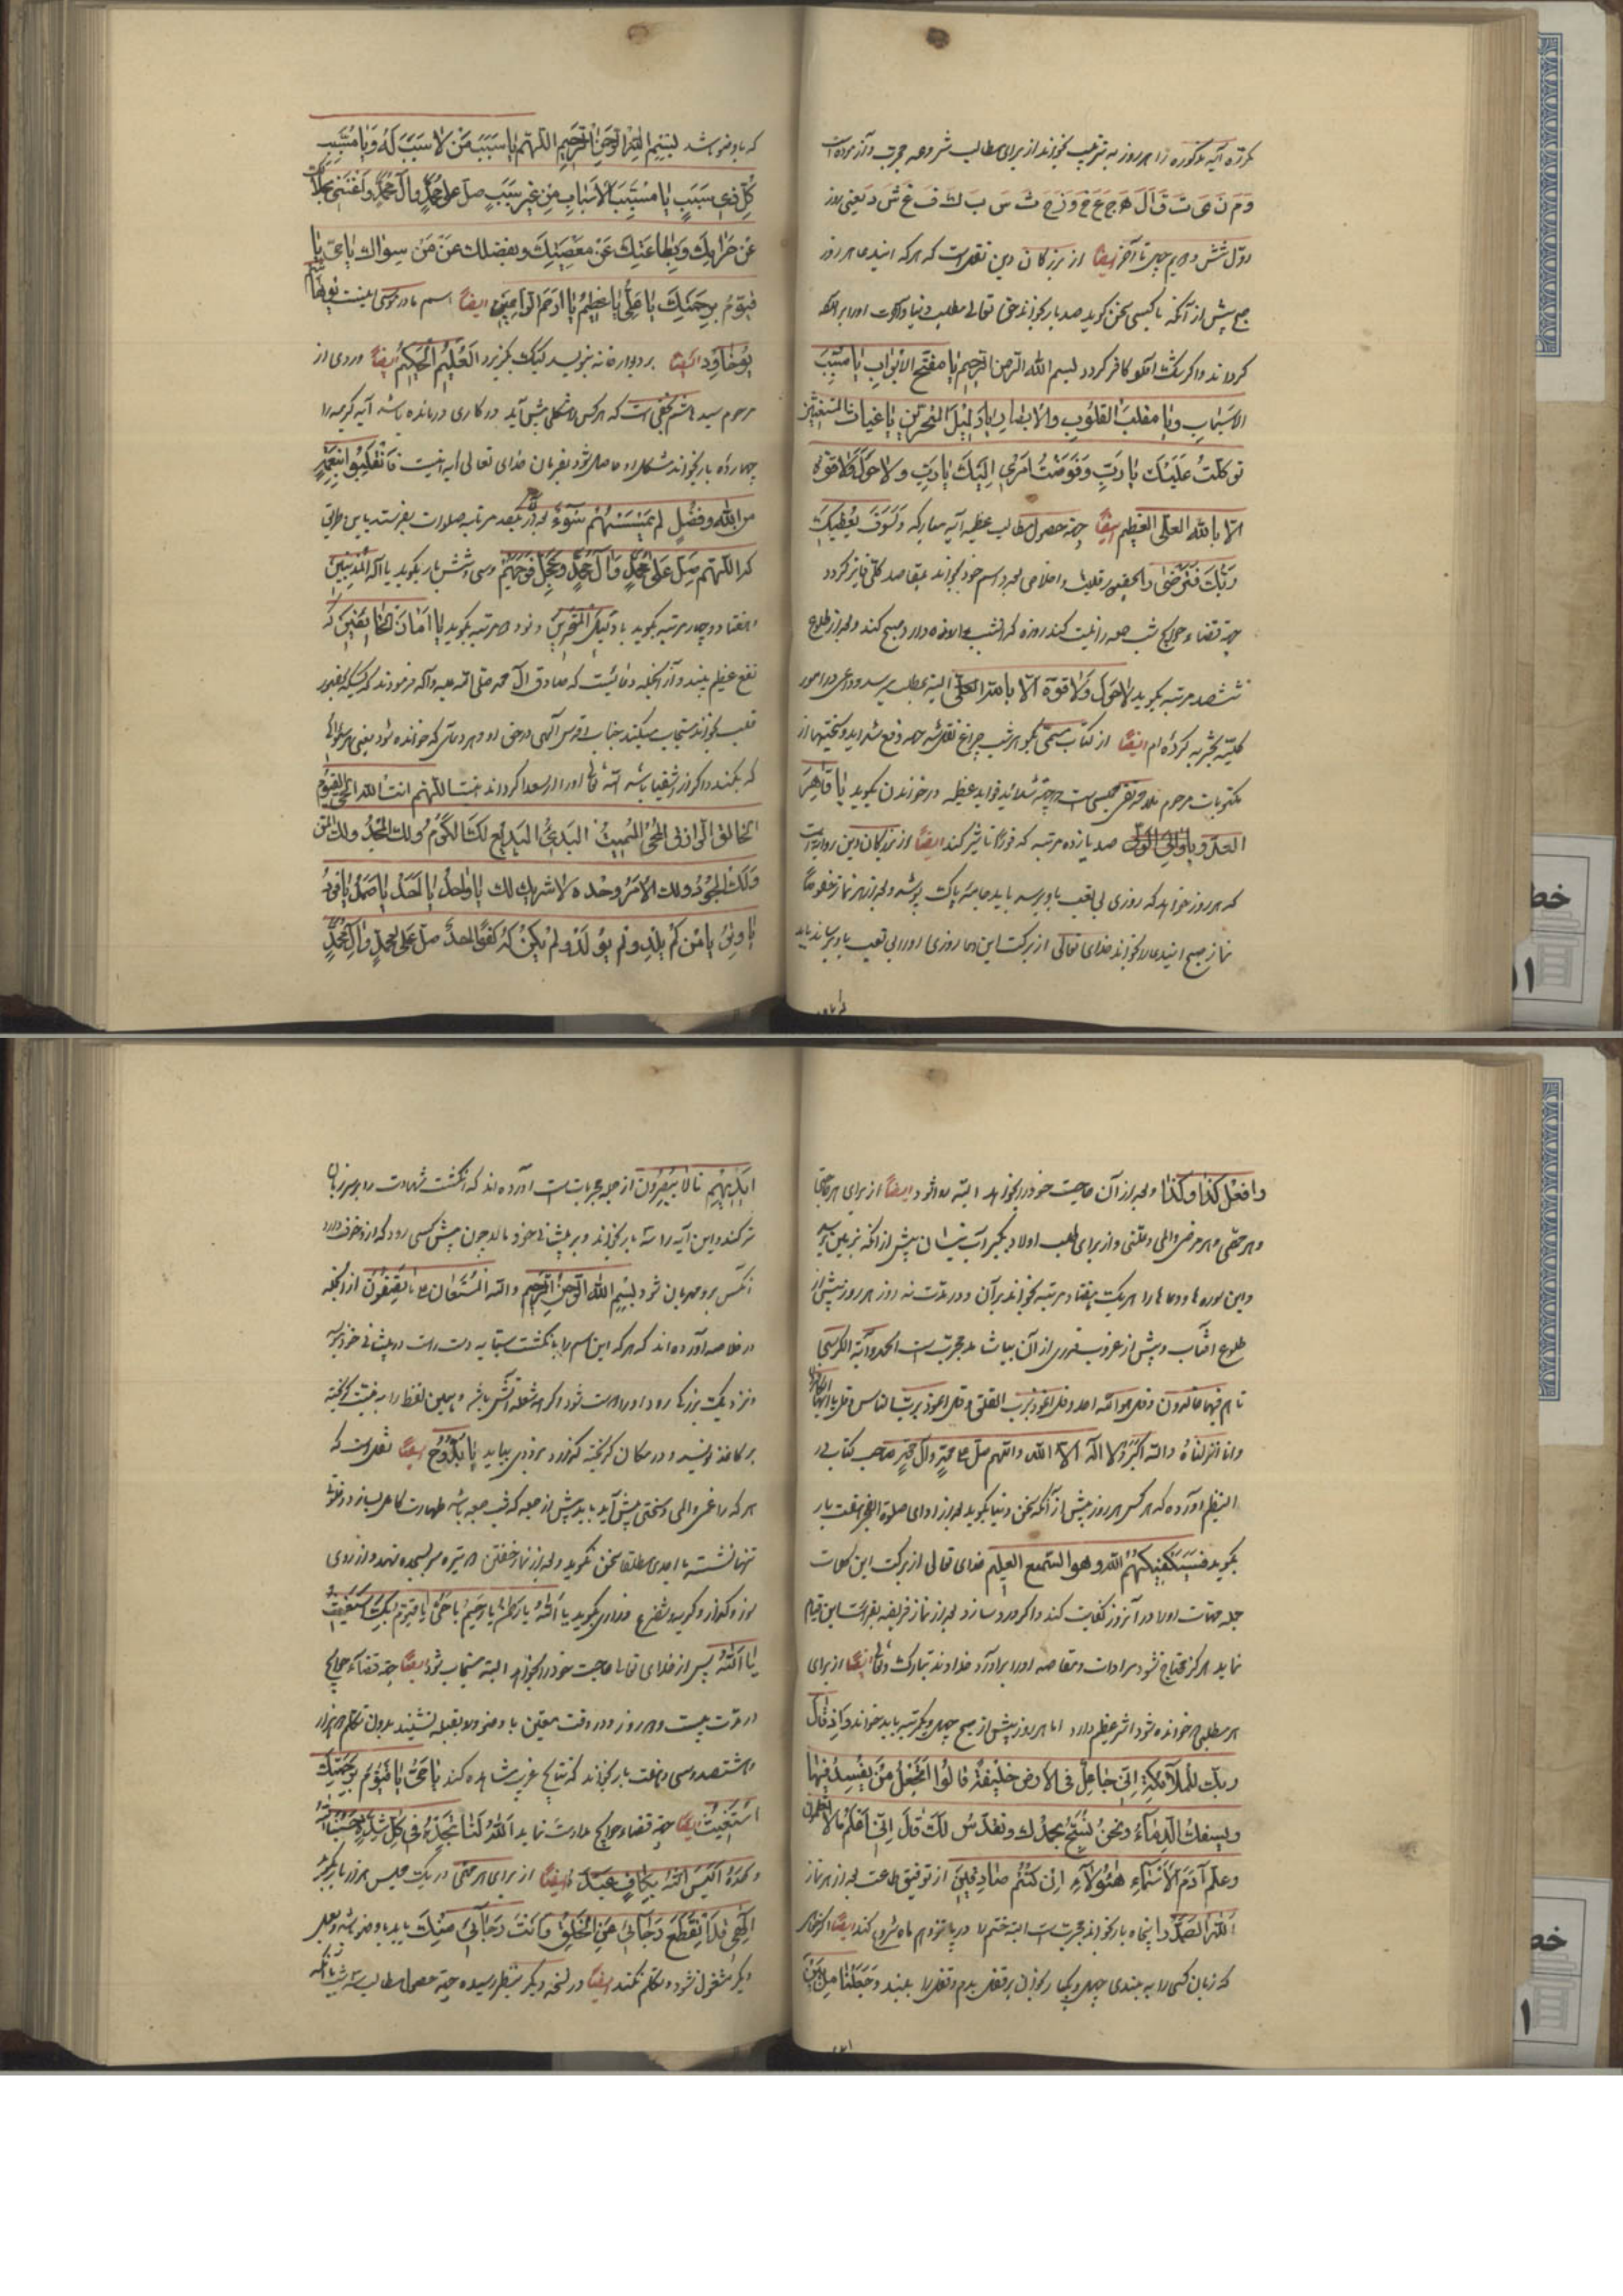 مکرّره آیه مذکوره را هر روز به ترتیب بخواند از برای مطالب شروعه مجربست و آزموده است
و م ن ی ت ق ا ل ه ج ع خ و ز ح ث س ب ك ف غ ش د یعنی روز
اوّل شش و دویم چهل تا آخر ایضاً از بزرگان دین نقل است که هر که ایندعا هر روز
صبح پیش از آنکه با کسی سخن گوید صد بار بخواند حق تعالی مطلب دنیا و آخرت او را بر
گرداند و اگر شک آورد کافر گردد بسم الله الرحمن الرحیم یا مفتح الابواب یا مسبّب
الاسباب ویا مقلب القلوب والابصار یا دلیل المتحیرین یا غیاث المستغیثین
توکلت علیك یا ربّ وفوضت امري الیك یا ربّ ولا حول ولا قوة
الا بالله العلی العظیم ایضاً جهة حصول مطالب عظیمه آیه مبارکه ولسوف یعطیك
ربّك فترضی را بحضور قلب و اخلاص بعدد اسم خود بخواند بمقاصد کلی فایز گردد
جهة قضاء حوایج شب جمعه را نیت کند روزه
ششصد مرتبه بگوید لا حول ولا قوة الا بالله العلی البته بمطلب میرسد
کلیّه تجربه کرده ام ایضاً از کتاب مسمّی
مکتوبات مرحوم ملا محمد تقی مجلسی است جهة شدائد فواید عظیمه در خواندن بگوید یا قاهر
العدو ویا والی الولی صد یازده مرتبه که فوراً تاثیر کند ایضاً از بزرگان دین روایت است
که هر روز خواهد که روزی بی تعب باو برسد باید جامه پاک پوشد و بعد از هر نماز خصوصاً
نماز صبح ایندعا را بخواند خدای تعالی از برکت این دعا روزی او را بی تعب باو برساند باید
که با وضو باشد بسم الله الرحمن الرحیم اللهم یا سبب من لا سبب له ویا مسبّب
کل ذي سبب یا مسبّب الاسباب من غیر سبب صل علی محمد وآل محمد واغننی بحلالك
عن حرامك وبطاعتك عن معصیتك وبفضلك عن من سواك یا حيّ یا
قیوم برحمتك یا علي یا عظیم یا ارحم الراحمین ایضاً اسم مادر موسی اینست
یوخاود ایضاً بر دیوار خانه بنویسد کیک بگریزد العلیم الحکیم ایضاً وردی از
مرحوم سید هاشم نجفی است که هر کس را مشکلی پیش آید در کاری درمانده باشد آیه کریمه را
چهارده بار بخواند مشکل او حاصل شود بفرمان خدای تعالی آیه اینست فانقلبوا بنعمة
من الله وفضل لم یمسسهم سوء بعد از یکصد مرتبه صلوات بفرستد باین طریق
که اللهم صل علی محمد وآل محمد وعجل فرجهم و سی و شش بار بگوید یا اله المذنبین
و هفتاد و چهار مرتبه بگوید یا دلیل المتحیرین و نود مرتبه بگوید یا امان الخائفین که
نفع عظیم بیند و از آنجمله دعائیست که صادق آل محمد صلی الله علیه وآله فرمودند که کسیکه بحضور
قلب بخواند مستجاب میکند جناب اقدس آلهی در حق او و هر دعائی که خوانده شود یعنی هر سئوالی
که بکند و اگر از اشقیا باشد الله تعالی او را از سعدا گرداند اللهم انت الله الحي القیوم
الخالق الرازق المحیی الممیت البديء البدیع لك الکرم ولك المجد ولك المن
ولك الجود ولك الامر وحدك لا شریك لك یا واحد یا احد یا صمد یا فرد
یا وتر یا من لم یلد ولم یولد ولم یکن له کفوا احد صل علی محمد وآل محمد
وافعل کذا وکذا و بعد از آن حاجت خود را بخواهد البته روا شود ایضاً از برای هر حاجتی
و هر حقی و هر مرضی و المی و علّتی و از برای طلب اولاد بگیر آب نیسان پیش از آنکه بزمین رسد
و این سوره ها و دعاها را هر یک هفتاد مرتبه بخواند بر آن و در مدّت نه روز هر روز پیش از
طلوع آفتاب و پیش از غروب قدری از آن بیاشامد مجرّبست الحمد و آیة الکرسی
تا هم فیها خالدون و قل هو الله احد و قل اعوذ برب الفلق و قل اعوذ برب الناس و قل یا ایها الکافرون
و انا انزلناه و الله اکبر و لا اله الا الله و اللهم صل علی محمد وآل محمد صاحب کتاب در
النظم آورده که هر کس هر روز پیش از آنکه سخن دنیا بگوید بعد از ادای صلوة الفجر هفت بار
بگوید فسیکفیکهم الله وهو السمیع العلیم خدای تعالی از برکت این کلمات
جمله مهمّات او را در آنروز کفایت کند و اگر ورد سازد بعد از نماز فریضه بقرائت این قیام
نماید هرگز محتاج نشود مرادات و مقاصد او را برآورد خداوند تبارک و تعالی ایضاً از برای
هر مطلبی خوانده شود اثر عظیم دارد اما هر روز پیش از صبح چهل و یکمرتبه باید خواند واذ قال
ربك للملائکة اني جاعل في الارض خلیفة قالوا اتجعل من یفسد فیها
ویسفك الدماء ونحن نسبح بحمدك ونقدس لك قال اني اعلم ما لا تعلمون
وعلم آدم الاسماء هؤلاء ان کنتم صادقین از توفیق طاعت بعد از هر نماز
الله الصمد را پنجاه بار بخواند مجربست البته ختم را در پانزدهم ماه شروع کند ایضاً اگر خواهی
که زبان کسی را به بندی چهل و یکبار بخوان بر قفل بدم و قفل را ببند وجعلنا من بین
ایدیهم تا لا یبصرون از جمله مجربات است آورده اند که انگشت شهادت را بر سر زبان
تر کند و این آیه را سه بار بخواند و بر پیشانی خود مالد چون پیش کسی رود که از او خوف دارد
آنکس برو مهربان شود بسم الله الرحمن الرحیم والله المستعان علی ما تصفون از آنجمله
در خلاصه آورده اند که هر که این اسم را بانگشت سبابه دست راست در پیشانی خود نویسد
و نزدیک بزرگی رود او را دوست شود و اگر همه شعله آتش باشد و همین لفظ را به نیت گریخته
بر کاغذ نویسد و در مکان گریخته گذارد بزودی بیاید یا بدوح ایضاً نقل است که
هر که را غمی و المی و سختی پیش آید باید پیش از جمعه که شب جمعه باشد طهارت کامل بسازد و در خلوت
تنها نشسته با احدی مطلقا سخن نگوید و بعد از نماز خفتن سر بسجده نهد و از روی
سوز و گداز و گریه و تضرع و زاری بگوید یا الله یا رحمن یا رحیم یا حي یا قیوم بك استغیث
یا الله پس از خدای تعالی حاجت خود را بخواهد البته مستجاب شود ایضاً جهة قضاء حوایج
در مدّت بیست و روز و در وقت معیّن با وضو رو بقبله نشیند بدون تکلم هزار
و هشتصد و سی و هفت بار بخواند که نتایج غریب مشاهده کند یا حي یا قیوم برحمتك
استغیث ایضاً جهة قضاء حوایج مداومت نماید
وحده الیس الله بکاف عبده ایضاً از برای هر حقی در یک مجلس هزار بار بگوید
الهی قد انقطع رجائي عن الخلق وانت رجائي منك باید با وضو باشد و بعمل
دیگر مشغول نشود و تکلم نکند ایضاً در نسخه دیگر بنظر رسیده جهة حصول مطالب